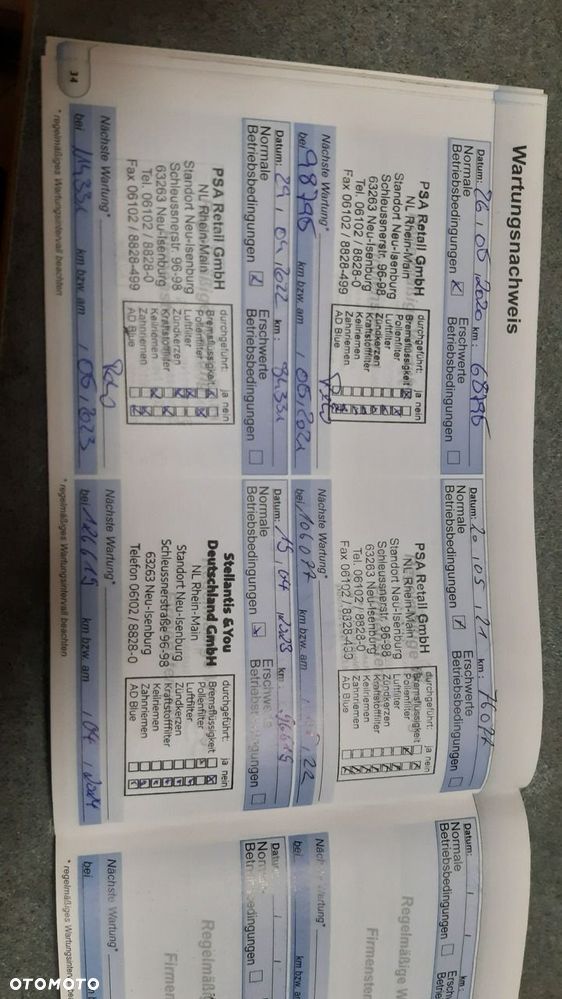 Wartungsnachweis
Datum: 26, 05, 2020 km: 68795
Normale
Betriebsbedingungen
Erschwerte
Betriebsbedingungen
PSA Retail GmbH
NL Rhein-Main
Standort Neu-Isenburg
Schleussnerstr. 96-98
63263 Neu-Isenburg
Tel. 06102 / 8828-0
Fax 06102 / 8828-499
durchgeführt: ja nein
Bremsflüssigkeit
Pollenfilter
Luftfilter
Zündkerzen
Kraftstofffilter
Keilriemen
Zahnriemen
AD Blue
Nächste Wartung*
bei 98795 km bzw. am / 05, 2021
Datum: 29, 04, 2022 km: 84331
Normale
Betriebsbedingungen
Erschwerte
Betriebsbedingungen
PSA Retail GmbH
NL Rhein-Main
Standort Neu-Isenburg
Schleussnerstr. 96-98
63263 Neu-Isenburg
Tel. 06102 / 8828-0
Fax 06102 / 8828-499
durchgeführt: ja nein
Bremsflüssigkeit
Pollenfilter
Luftfilter
Zündkerzen
Kraftstofffilter
Keilriemen
Zahnriemen
AD Blue
Nächste Wartung*
bei 114331 km bzw. am / 05, 2023
34
* regelmäßiges Wartungsintervall beachten
Datum: 20, 05, 21 km: 76077
Normale
Betriebsbedingungen
Erschwerte
Betriebsbedingungen
PSA Retail GmbH
NL Rhein-Main
Standort Neu-Isenburg
Schleussnerstr. 96-98
63263 Neu-Isenburg
Tel. 06102 / 8828-0
Fax 06102 / 8828-499
durchgeführt: ja nein
Bremsflüssigkeit
Pollenfilter
Luftfilter
Zündkerzen
Kraftstofffilter
Keilriemen
Zahnriemen
AD Blue
Nächste Wartung*
bei 106077 km bzw. am , 22
Datum: 15, 04, 2023 km: 96619
Normale
Betriebsbedingungen
Erschwerte
Betriebsbedingungen
Stellantis &You
Deutschland GmbH
NL Rhein-Main
Standort Neu-Isenburg
Schleussnerstraße 96-98
63263 Neu-Isenburg
Telefon 06102 / 8828-0
durchgeführt: ja nein
Bremsflüssigkeit
Pollenfilter
Luftfilter
Zündkerzen
Kraftstofffilter
Keilriemen
Zahnriemen
AD Blue
Nächste Wartung*
bei 126619 km bzw. am / 04, 2024
* regelmäßiges Wartungsintervall beachten
Datum: / / km:
Normale
Betriebsbedingungen
Regelmäßige
Nächste Wartung*
bei km bzw. am
Normale
Betriebsbedingungen
Nächste Wartung*
bei
* regelmäßiges
OTOMOTO